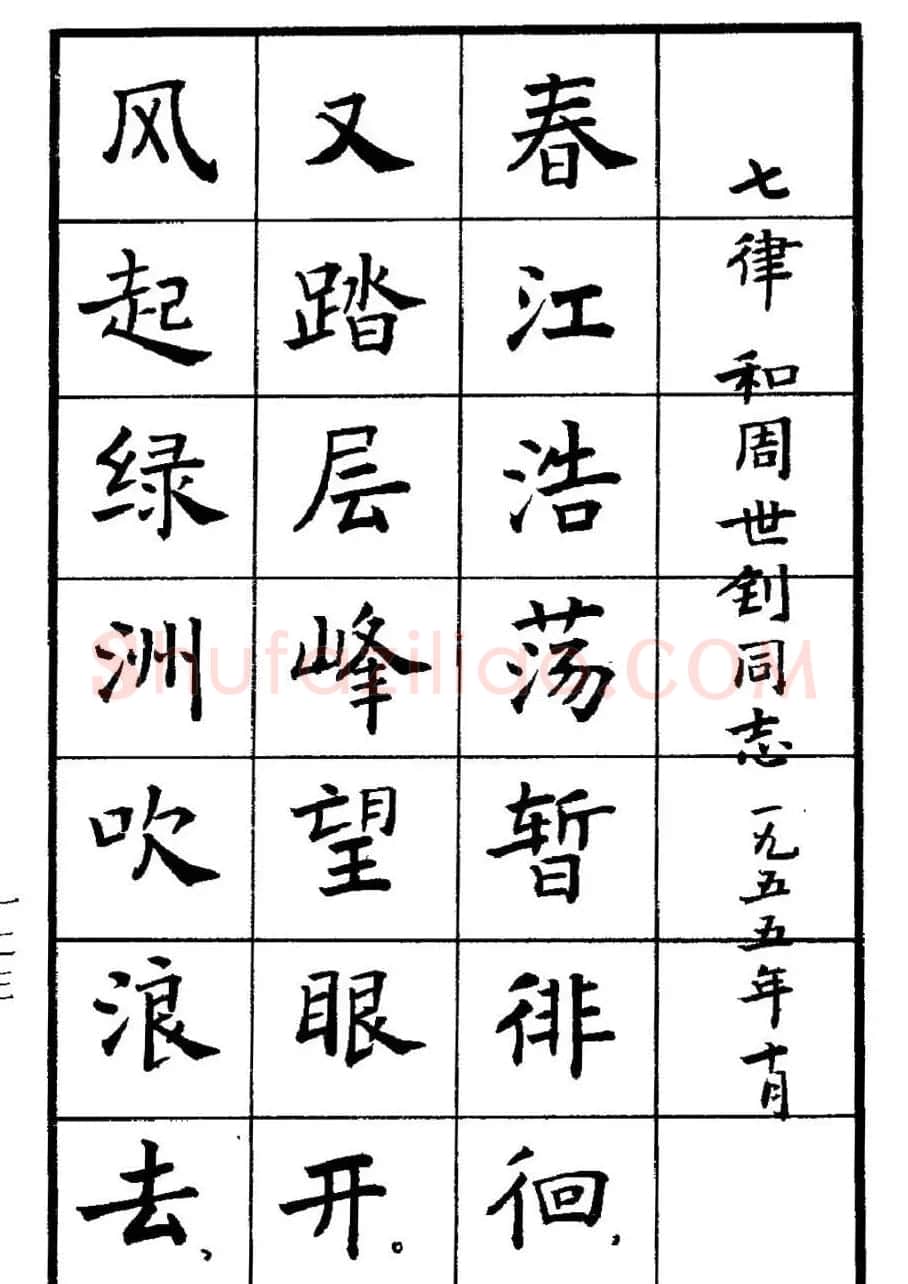 七律 和周世钊同志 一九五五年十月
春江浩荡暂徘徊，
又踏层峰望眼开。
风起绿洲吹浪去，
一二三
Shufaziliao.COM